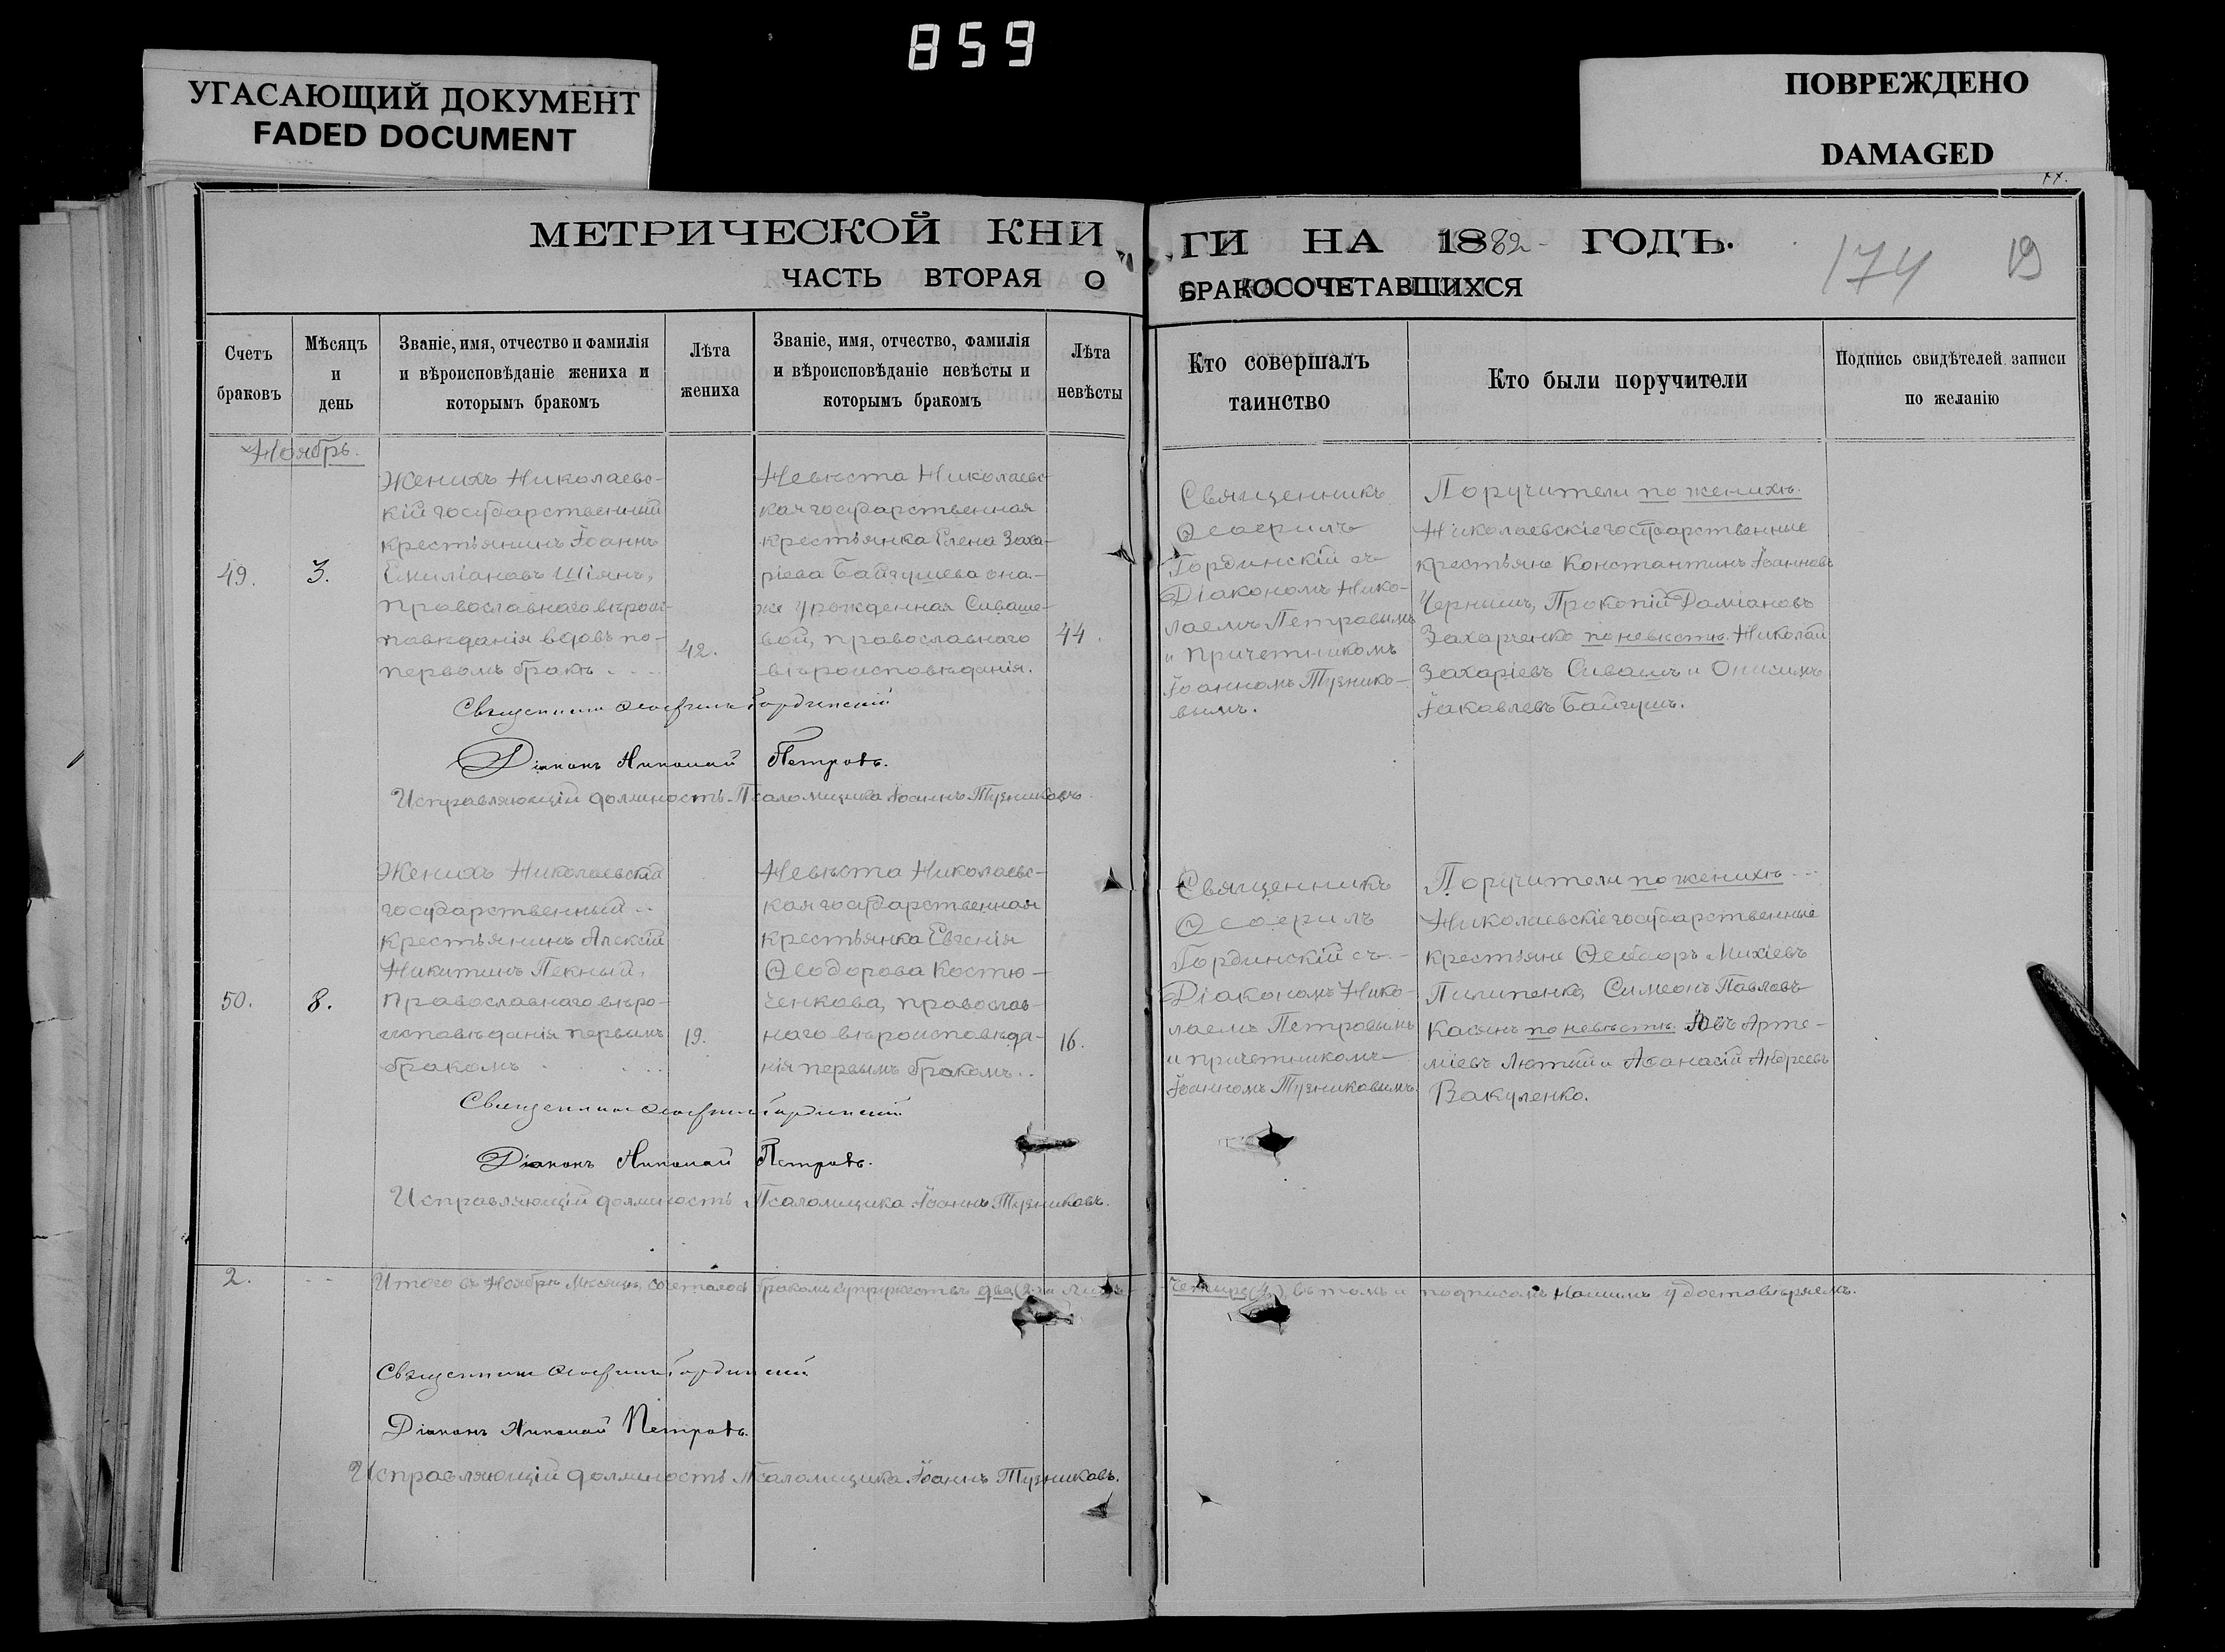 859
УГАСАЮЩИЙ ДОКУМЕНТ
FADED DOCUMENT
ПОВРЕЖДЕНО
DAMAGED
МЕТРИЧЕСКОЙ КНИ
ГИ НА 1882 ГОДЪ.
174 19
ЧАСТЬ ВТОРАЯ О
БРАКОСОЧЕТАВШИХСЯ
Счетъ
браковъ
Мѣсяцъ
и
день
Званіе, имя, отчество и фамилія
и вѣроисповѣданіе жениха и
которымъ бракомъ
Лѣта
жениха
Званіе, имя, отчество, фамилія
и вѣроисповѣданіе невѣсты и
которымъ бракомъ
Лѣта
невѣсты
Кто совершалъ
таинство
Кто были поручители
Подпись свидѣтелей записи
по желанію
Ноябрь.
49.
3.
Женихъ Николаевс-
кій государственный
крестьянинъ Іоаннъ
Емиліановъ Шіянъ,
православнаго вѣроис-
повѣданія вдовъ по-
первомъ бракѣ
42.
Невѣста Николаевс-
кая государственная
крестьянка Елена Заха-
ріева Байгушева она-
же урожденная Сиваше-
вой, православнаго
вѣроисповѣданія.
44.
Священникъ
Ѳеофилъ
Гординскій съ
Діакономъ Нико-
лаемъ Петровымъ
и Причетникомъ
Іоанномъ Тузнико-
вымъ.
Поручители по женихѣ.
Николаевскіе государственные
крестьяне Константинъ Іоанновъ
Чернышъ, Прокопій Даміановъ
Захарченко по невѣстѣ Николай
Захаріевъ Сивашъ и Онисимъ
Іаковлевъ Байгушъ.
Священникъ Ѳеофилъ Гординскій
Діаконъ Николай Петровъ.
Исправляющій должность Псаломщика Іоаннъ Тузниковъ.
50.
8.
Женихъ Николаевскій
государственный
крестьянинъ Алексій
Никитинъ Пекный,
Православнаго вѣро-
исповѣданія первымъ
бракомъ
19.
Невѣста Николаевс-
кая государственная
крестьянка Евгенія
Ѳеодорова Костю-
ченкова, православ-
наго вѣроисповѣда-
нія первымъ бракомъ.
16.
Священникъ
Ѳеофилъ
Гординскій съ
Діакономъ Нико-
лаемъ Петровымъ
и причетникомъ
Іоанномъ Тузниковымъ.
Поручители по женихѣ
Николаевскіе государственные
крестьяне Ѳеодоръ Михіевъ
Пилипенко, Симеонъ Павловъ
Касянъ по невѣстѣ Іовъ Арте-
міевъ Лютый и Аѳанасій Андреевъ
Вакуленко.
Священникъ Ѳеофилъ Гординскій
Діаконъ Николай Петровъ.
Исправляющій должность Псаломщика Іоаннъ Тузниковъ.
2.
Итого въ Ноябрѣ Мѣсяцѣ, сочеталось бракомъ супружествъ два (2)
четыре (4), въ томъ и подписомъ нашимъ удостовѣряемъ.
Священникъ Ѳеофилъ Гординскій
Діаконъ Николай Петровъ.
Исправляющій должность Псаломщика Іоаннъ Тузниковъ.